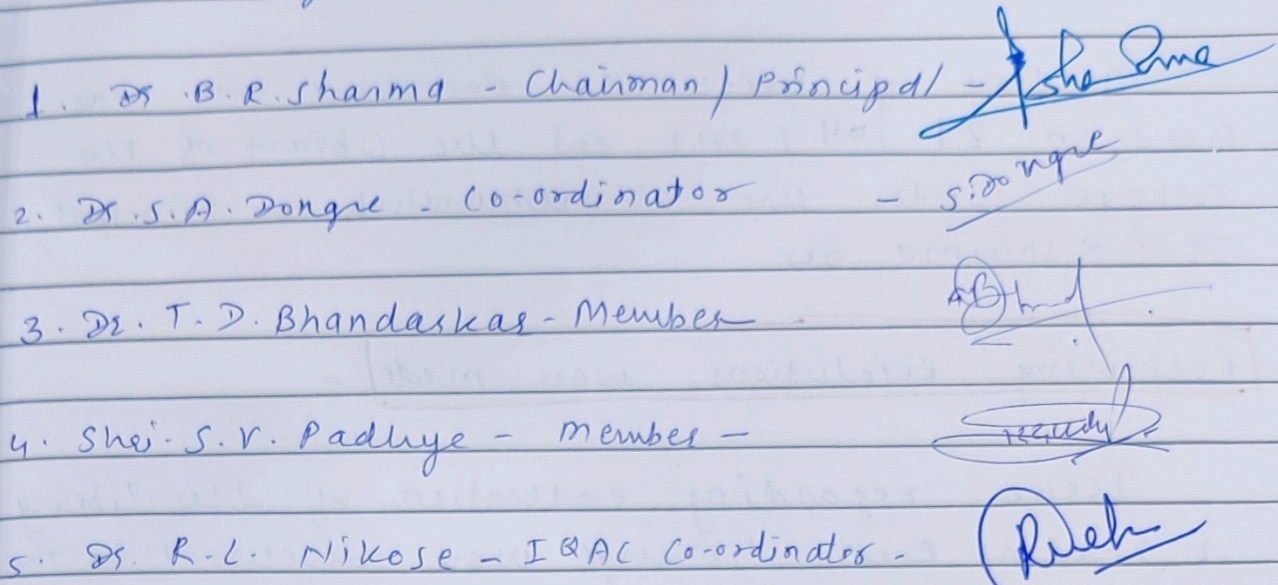 1. Dr. B. R. Sharma - Chairman / Principal -
2. Dr. S. A. Dongre - Co-ordinator - S. Dongre
3. Dr. T. D. Bhandarkar - Member
4. Shri. S. V. Padhye - Member -
5. Dr. R. L. Nikose - IQAC Co-ordinator -